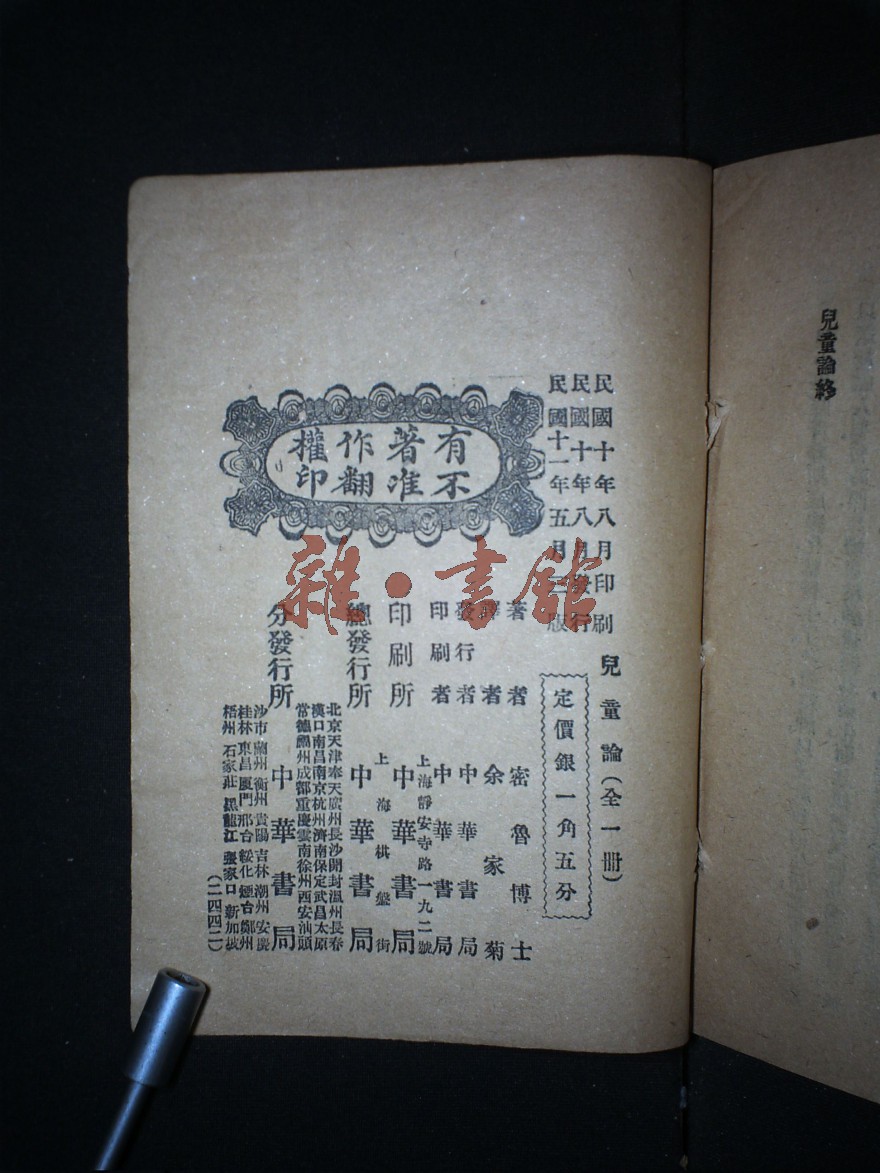 兒童論終
民國十年八月印刷
民國十年八月發行
民國十一年五月三版
有著作權
不准翻印
兒童論(全一冊)
定價銀一角五分
著者 密魯博士
譯者 余家菊
發行者 中華書局
印刷者 中華書局
印刷所 上海靜安寺路一九二號 中華書局
總發行所 上海棋盤街 中華書局
分發行所 中華書局
北京天津奉天廣州長沙開封溫州長春
漢口南昌南京杭州濟南保定武昌太原
常德福州成都重慶雲南徐州西安汕頭
沙市蘭州衡州貴陽吉林潮州安慶
桂林東昌厦門邢台綏化烟台鄭州
梧州石家莊黑龍江張家口新加坡
(二四四二)
雜·書館